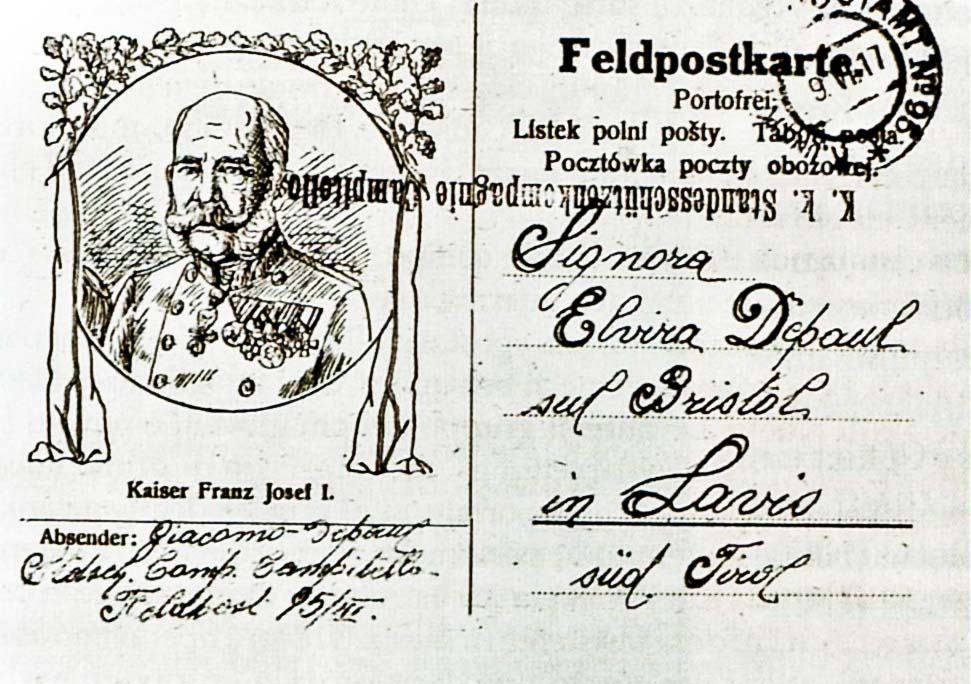 Feldpostkarte.
Portofrei;
Lístek polní pošty. Tábori posta.
Pocztówka poczty obozowej.
K. k. Standesschützenkompagnie Campitello
Signora
Elvira Depaul
sul Bristol
in Lavis
süd Tirol
Kaiser Franz Josef I.
Absender: Giacomo Depaul
Comp. Campitello
Feldpost 95/III.
9 17
AMT Nº 95